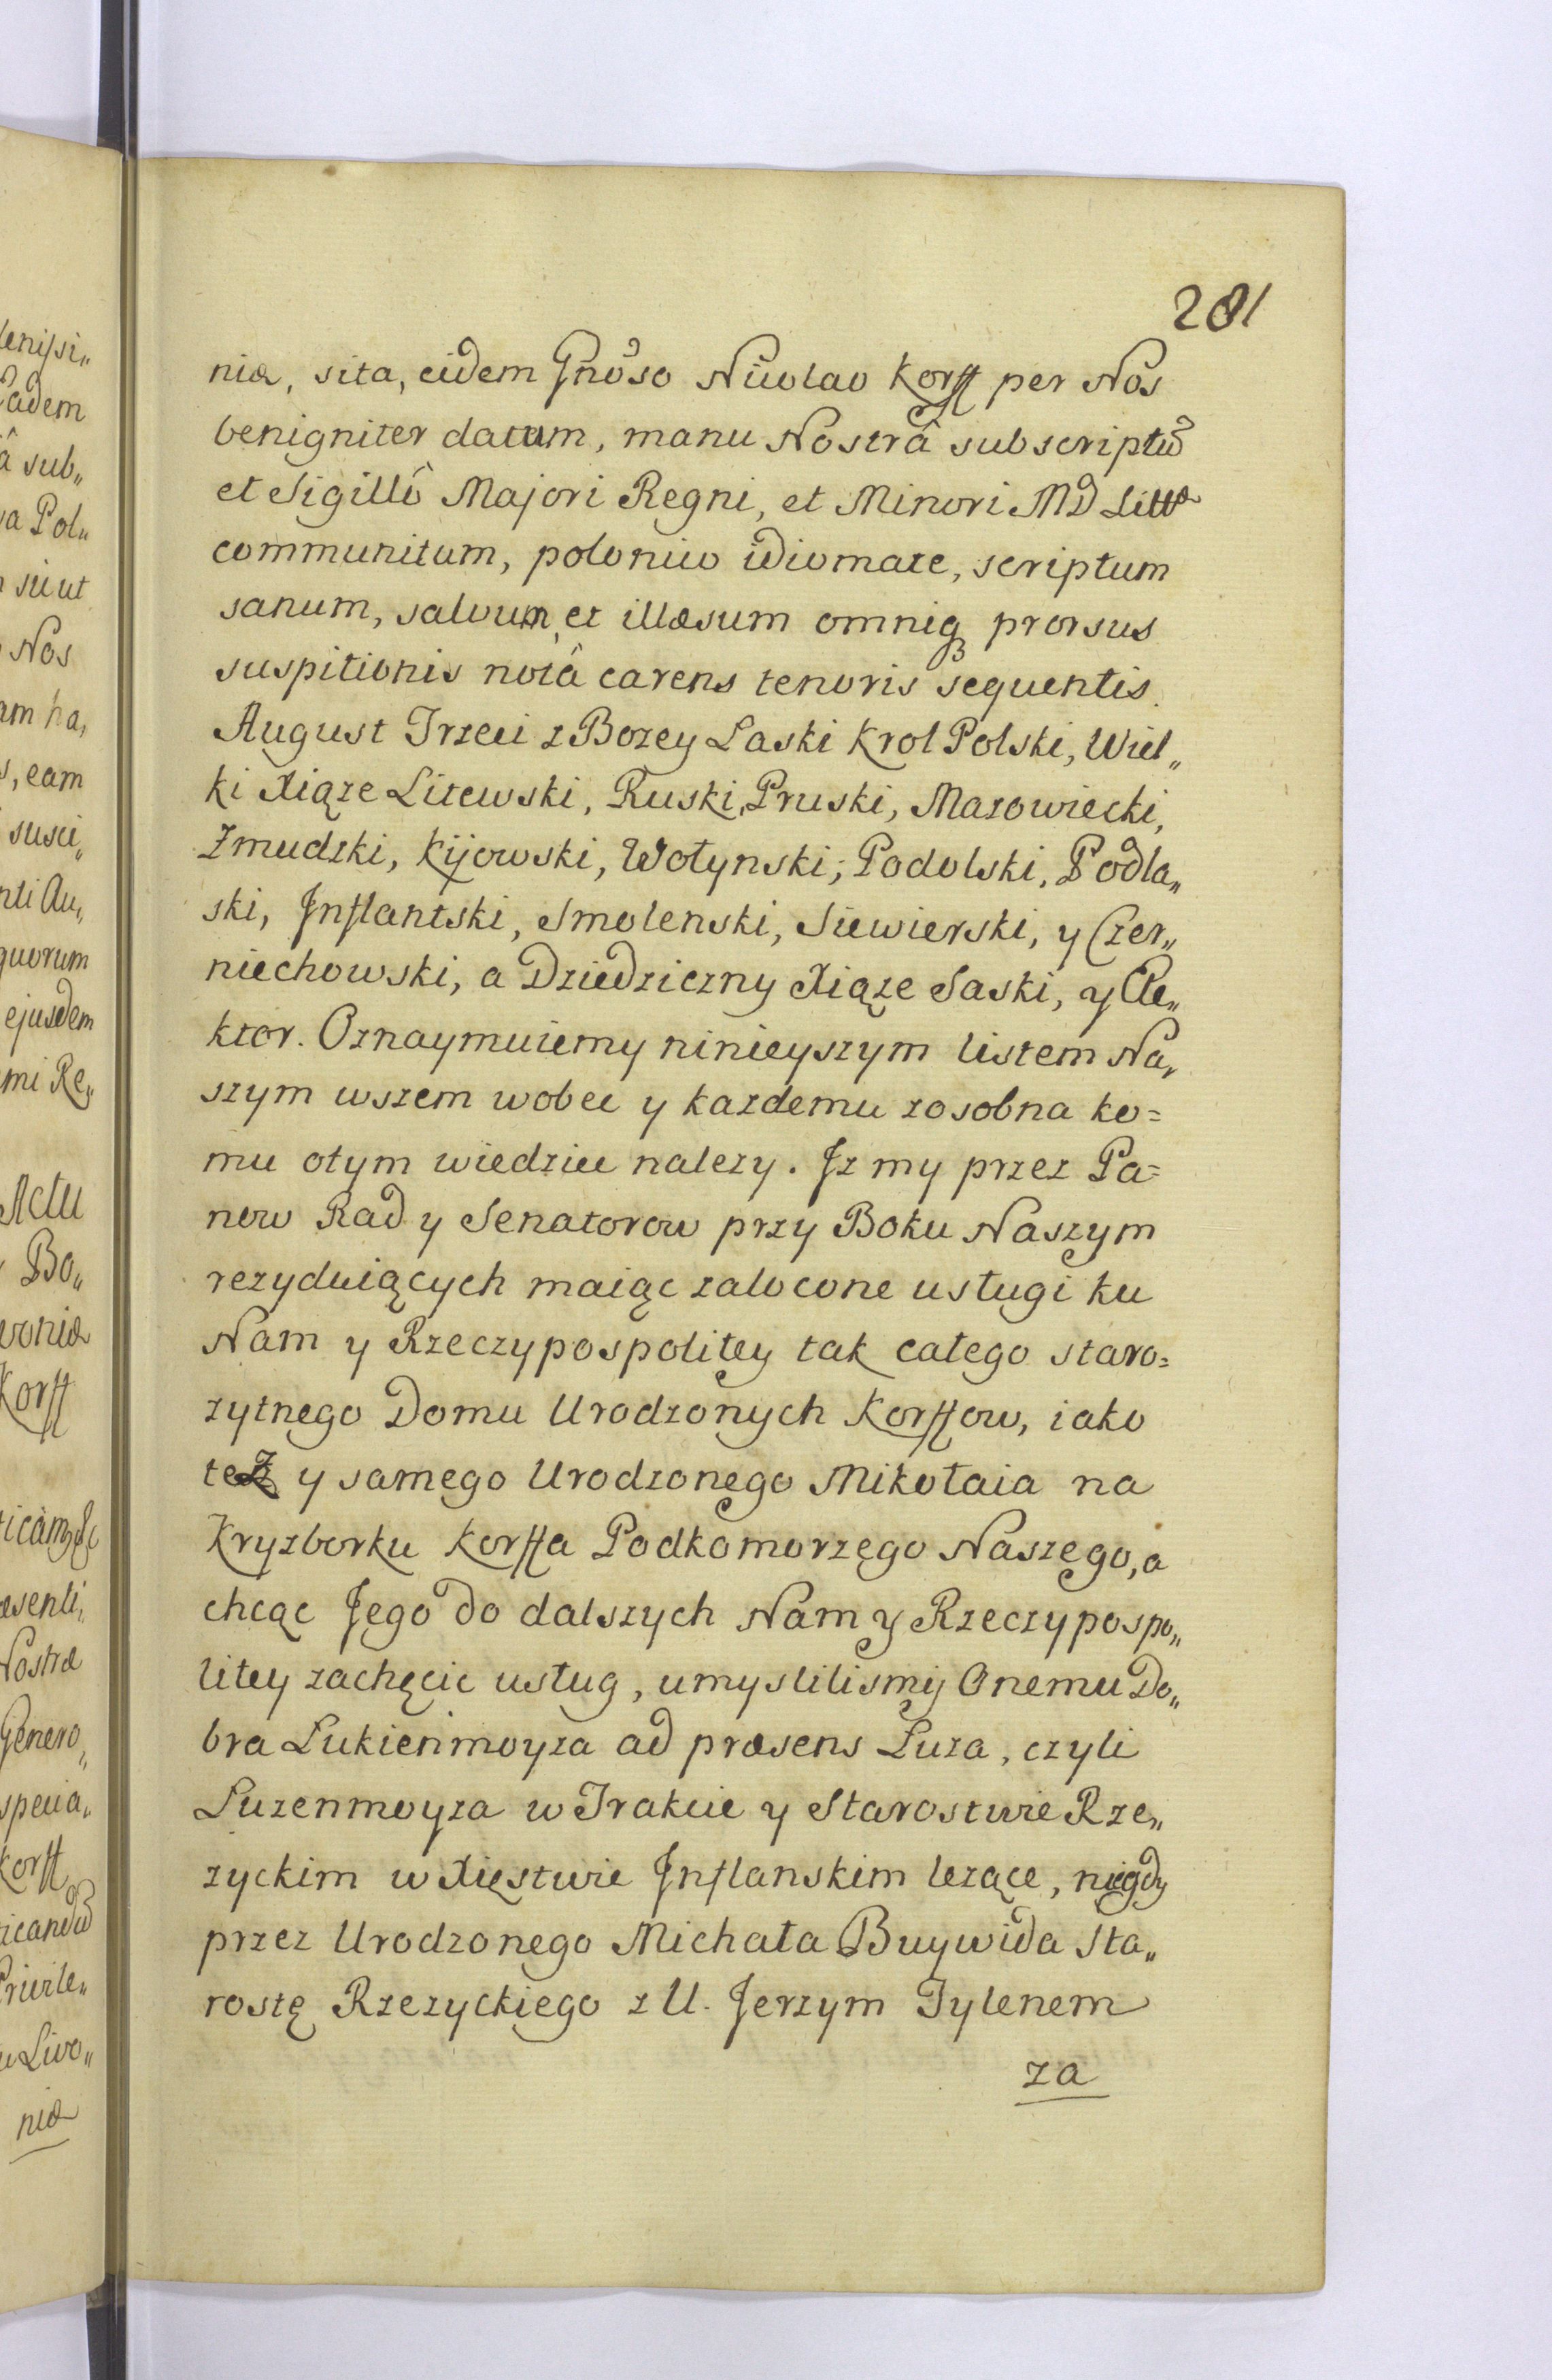 281
niæ, sita, eidem Gnoso Nicolao Korff per Nos
benigniter datum, manu Nostrâ subscriptũ
et Sigillô Majori Regni, et Minori MD Littæ
communitum, polonico idiomate, scriptum
sanum, salvum, et illæsum omniq3 prorsus
suspitionis notâ carens tenoris sequentis.
August Trzeci z Bozey Laski Krol Polski, Wiel„
ki Xiąze Litewski, Ruski, Pruski, Mazowiecki,
Zmudzki, Kijowski, Wołynski, Podolski, Podla„
ski, Inflantski, Smolenski, Siewierski, y Czer„
niechowski, a Dziedziczny Xiąze Saski, y Ele„
ktor. Oznaymuiemy ninieyszym listem Na„
szym wszem wobec y kazdemu zosobna ko=
mu otym wiedziec nalezy. Iz my przez Pa=
now Rad y Senatorow przy Boku Naszym
rezyduiących maiąc zalocone usługi ku
Nam y Rzeczypospolitey tak całego staro=
zytnego Domu Urodzonych Korffow, iako
tez y samego Urodzonego Mikołaia na
Kryzborku Korffa Podkomorzęgo Naszęgo, a
chcąc Jego do dalszych Nam y Rzeczypospo„
litey zachęcic usług, umyslilismy Onemu Do„
bra Lukienmoyza ad præsens Luza, czyli
Luzenmoyza w Trakcie y Starostwie Rze„
zyckim w Xięstwie Inflanskim lezące, niegdy
przez Urodzonego Michała Buywida Sta„
rostę Rzezyckiego z U. Jerzym Tylenem
za